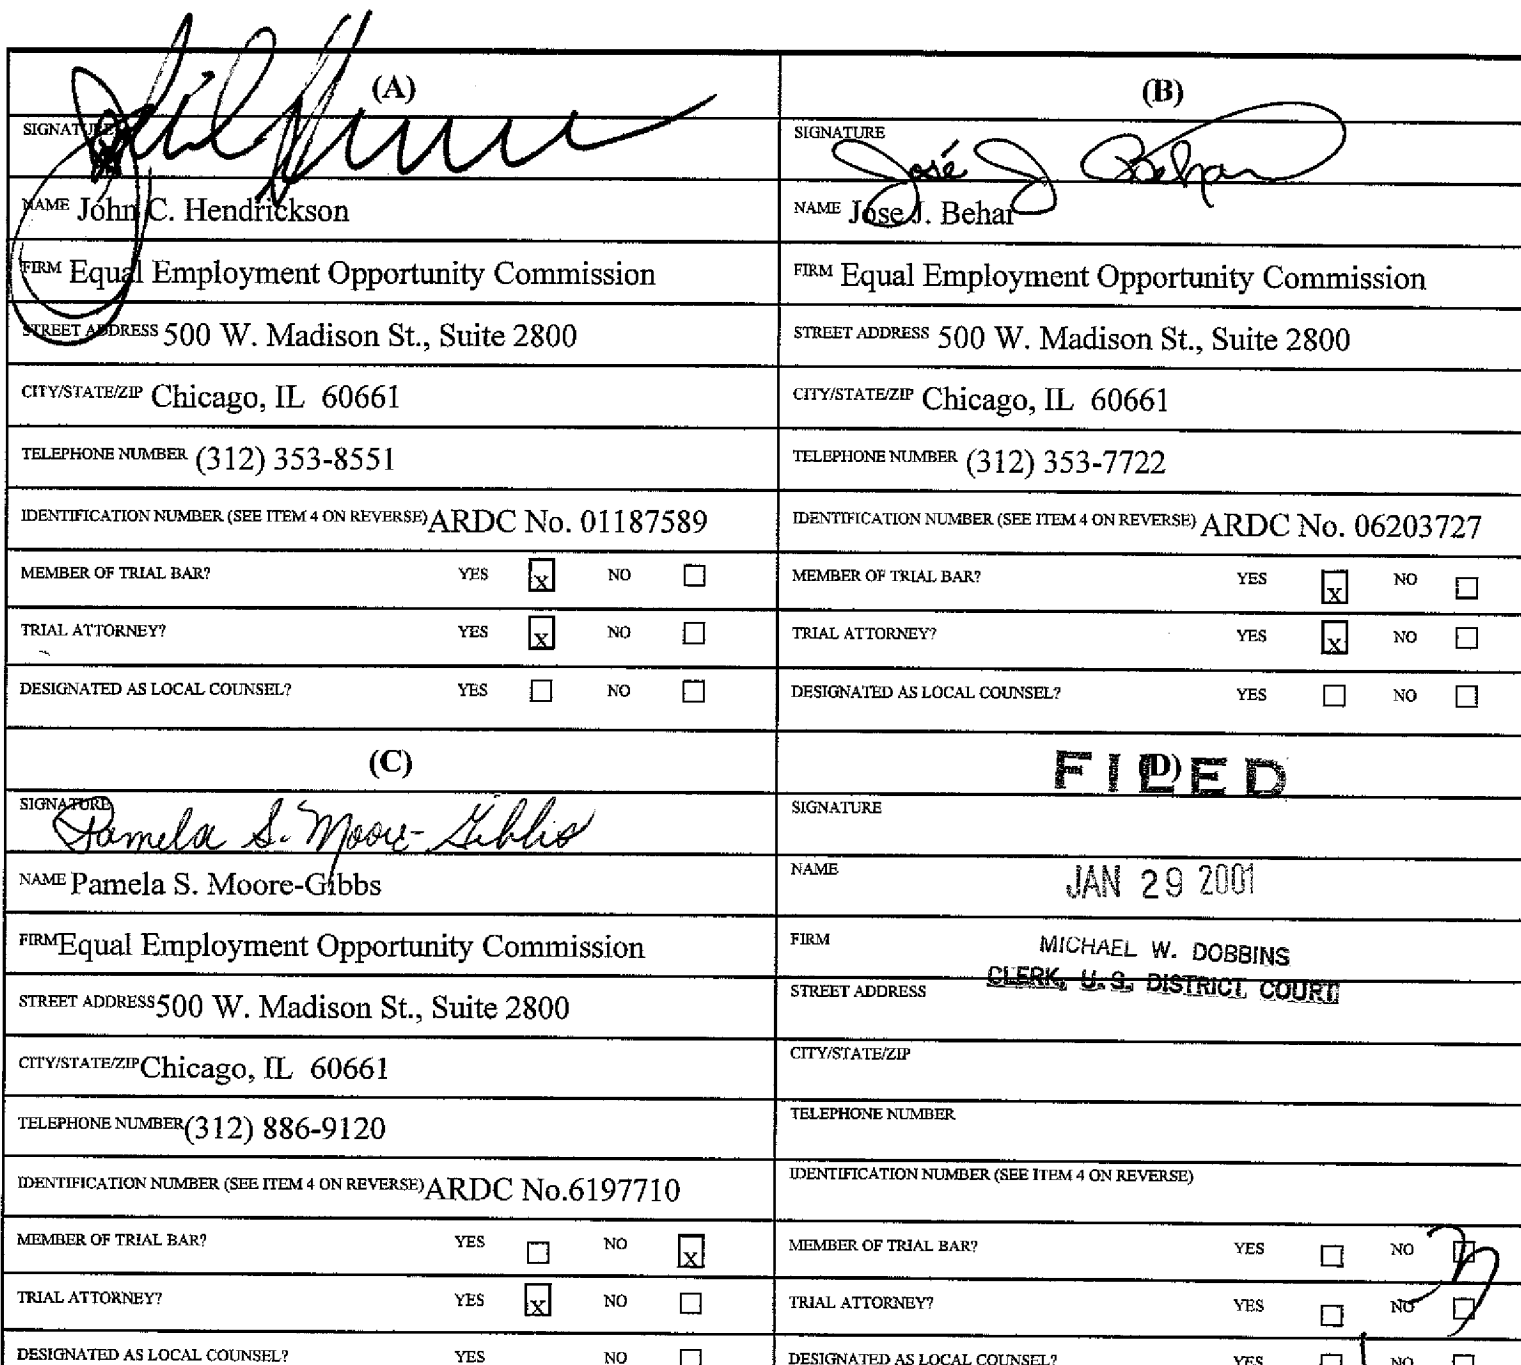 (A)
SIGNATURE
NAME John C. Hendrickson
FIRM Equal Employment Opportunity Commission
STREET ADDRESS 500 W. Madison St., Suite 2800
CITY/STATE/ZIP Chicago, IL 60661
TELEPHONE NUMBER (312) 353-8551
IDENTIFICATION NUMBER (SEE ITEM 4 ON REVERSE) ARDC No. 01187589
MEMBER OF TRIAL BAR? YES x NO
TRIAL ATTORNEY? YES x NO
DESIGNATED AS LOCAL COUNSEL? YES NO
(B)
SIGNATURE
José J Behar
NAME Jose J. Behar
FIRM Equal Employment Opportunity Commission
STREET ADDRESS 500 W. Madison St., Suite 2800
CITY/STATE/ZIP Chicago, IL 60661
TELEPHONE NUMBER (312) 353-7722
IDENTIFICATION NUMBER (SEE ITEM 4 ON REVERSE) ARDC No. 06203727
MEMBER OF TRIAL BAR? YES x NO
TRIAL ATTORNEY? YES x NO
DESIGNATED AS LOCAL COUNSEL? YES NO
(C)
SIGNATURE
Pamela S. Moore-Gibbs
NAME Pamela S. Moore-Gibbs
FIRM Equal Employment Opportunity Commission
STREET ADDRESS 500 W. Madison St., Suite 2800
CITY/STATE/ZIP Chicago, IL 60661
TELEPHONE NUMBER (312) 886-9120
IDENTIFICATION NUMBER (SEE ITEM 4 ON REVERSE) ARDC No.6197710
MEMBER OF TRIAL BAR? YES NO x
TRIAL ATTORNEY? YES x NO
DESIGNATED AS LOCAL COUNSEL? YES NO
(D)
FILED
SIGNATURE
NAME
JAN 29 2001
FIRM
MICHAEL W. DOBBINS
CLERK, U.S. DISTRICT COURT
STREET ADDRESS
CITY/STATE/ZIP
TELEPHONE NUMBER
IDENTIFICATION NUMBER (SEE ITEM 4 ON REVERSE)
MEMBER OF TRIAL BAR? YES NO
TRIAL ATTORNEY? YES NO
DESIGNATED AS LOCAL COUNSEL? YES NO